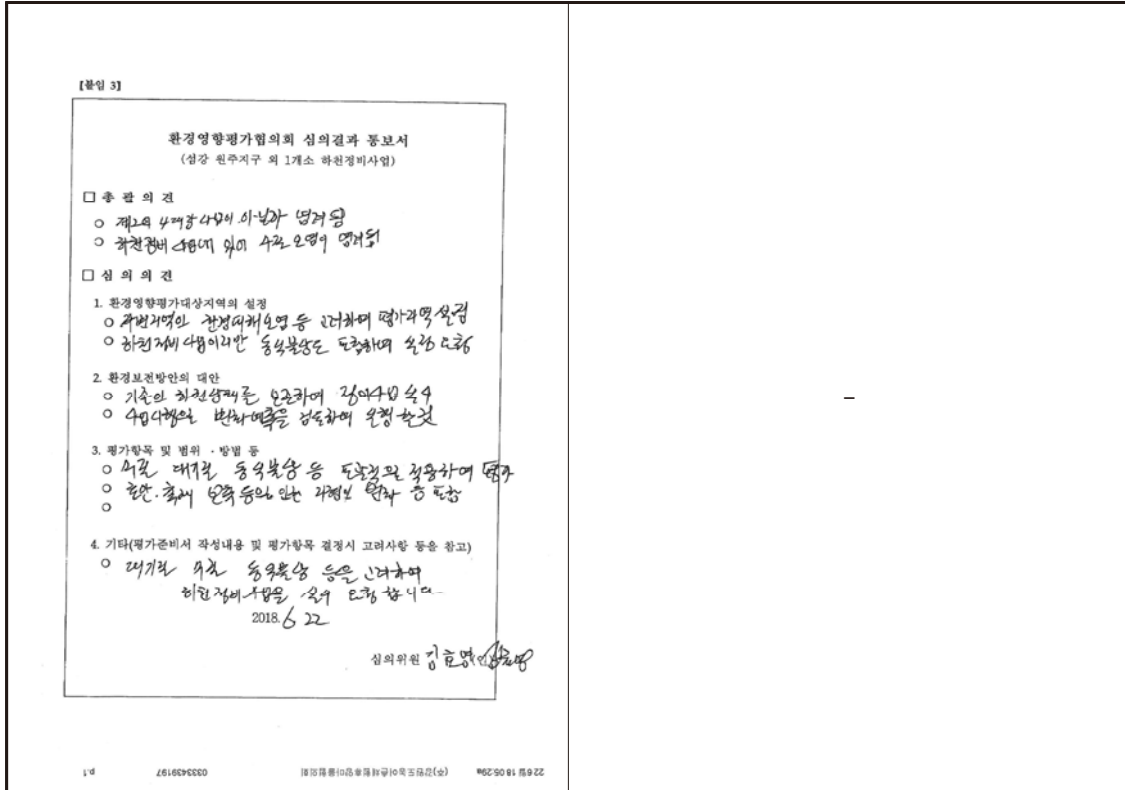 【붙임 3】
환경영향평가협의회 심의결과 통보서
(섬강 원주지구 외 1개소 하천정비사업)
□ 총 괄 의 견
○ 제2의 4대강 사업이 아닐까 염려됨
○ 하천정비 사업에 있어 수질오염이 염려됨
□ 심 의 의 견
1. 환경영향평가대상지역의 설정
○ 주변지역의 환경 등 고려하여 평가지역 설정
○ 하천정비사업이지만 동식물상도 포함하여 설정 요함
2. 환경보전방안의 대안
○ 기존의 하천상태를 보존하여 정비사업 실시
○ 사업시행으로 변화예측을 검토하여 할 것
3. 평가항목 및 범위 · 방법 등
○ 수질 대기질 동식물상 등 적용하여 평가
○ 호안. 등의 인한 지형의 변화 등 포함
○
4. 기타(평가준비서 작성내용 및 평가항목 결정시 고려사항 등을 참고)
○ 대기질 수질 동식물상 등을 고려하여
하천정비사업을 실시 요청합니다
2018. 6 22
심의위원 김효영
22 6월 18 05:29a (주)강원도 0333439197 p.1
–